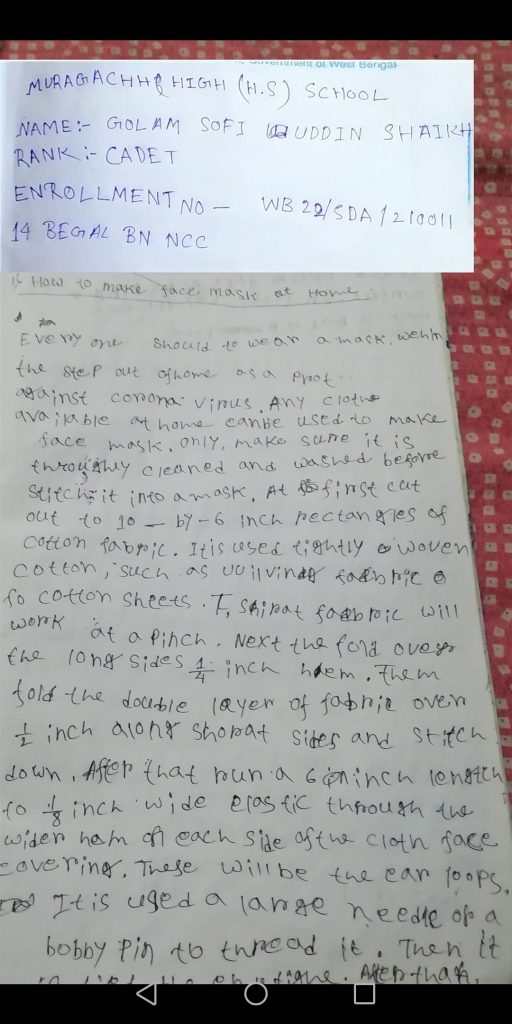 Government of West Bengal
MURAGACHHA HIGH (H.S) SCHOOL
NAME:- GOLAM SOFI UDDIN SHAIKH
RANK:- CADET
ENROLLMENT NO - WB22/SDA/210011
14 BEGAL BN NCC
How to make face mask at Home
Every one should to wear a mask. wehn
the step out of home as a proof
against corona virus. Any clothe
available at home can be used to make
face mask. only, make sure it is
throughly cleaned and washed before
stitch it into a mask. At first cut
out to 10 - by - 6 inch rectangles of
cotton fabric. It is used tightly woven
cotton, such as fabric
fo cotton sheets. T, shirat faebric will
work at a pinch. Next the fold over
the long sides 1/4 inch hem. Them
fold the double layer of fabric over
1/2 inch along shorat sides and stitch
down. After that run a 6 inch length
to 1/8 inch wide elastic through the
wider ham of each side of the cloth face
covering. These will be the ear loops.
It is used a large needle or a
bobby pin to thread it. Then it
After that,